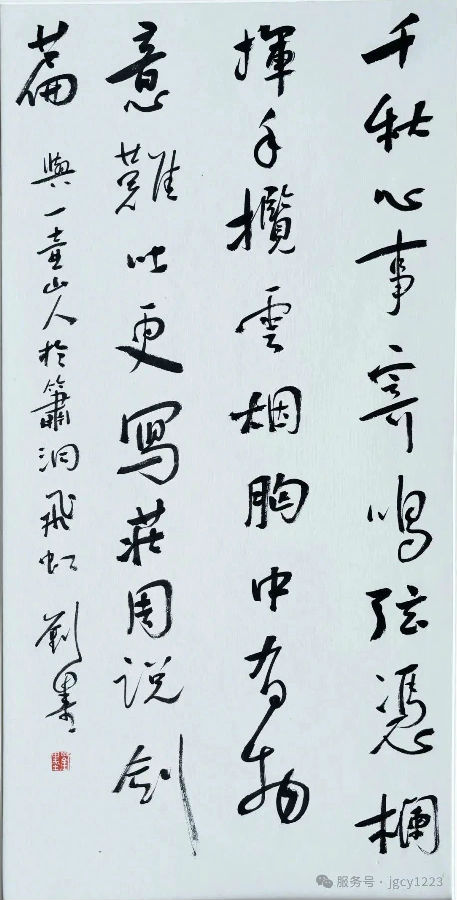 千秋心事寄鸣弦憑欄
揮手攬雲烟胸中有物
意難吐更寫莊周说剑
篇
與一壺山人於簫洞飛虹 劉墨
服务号·jgcy1223